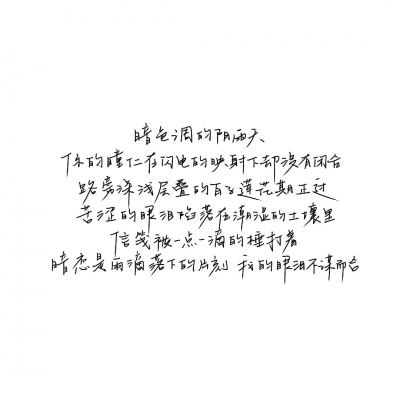 暗色调的阴雨天
你的瞳仁在闪电的映射下却没有闭合
路旁深浅层叠的百子莲花期正过
苦涩的眼泪陷落在潮湿的土壤里
信笺被一点一滴的捶打着
暗恋是雨滴落下的片刻 我的眼泪不谋而合